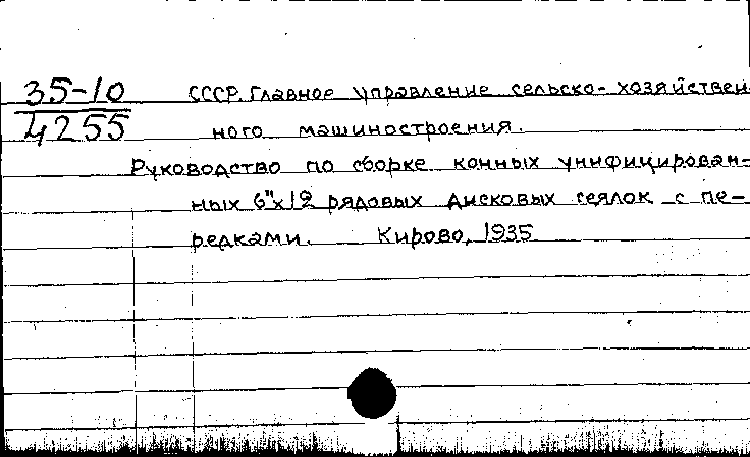 35-10 СССР. Главное управление сельско-хозяйствен-
4255 ного машиностроения.
Руководство по сборке конных унифицирован-
ных 6"х12 рядовых дисковых сеялок с пе-
редками. Кирово, 1935